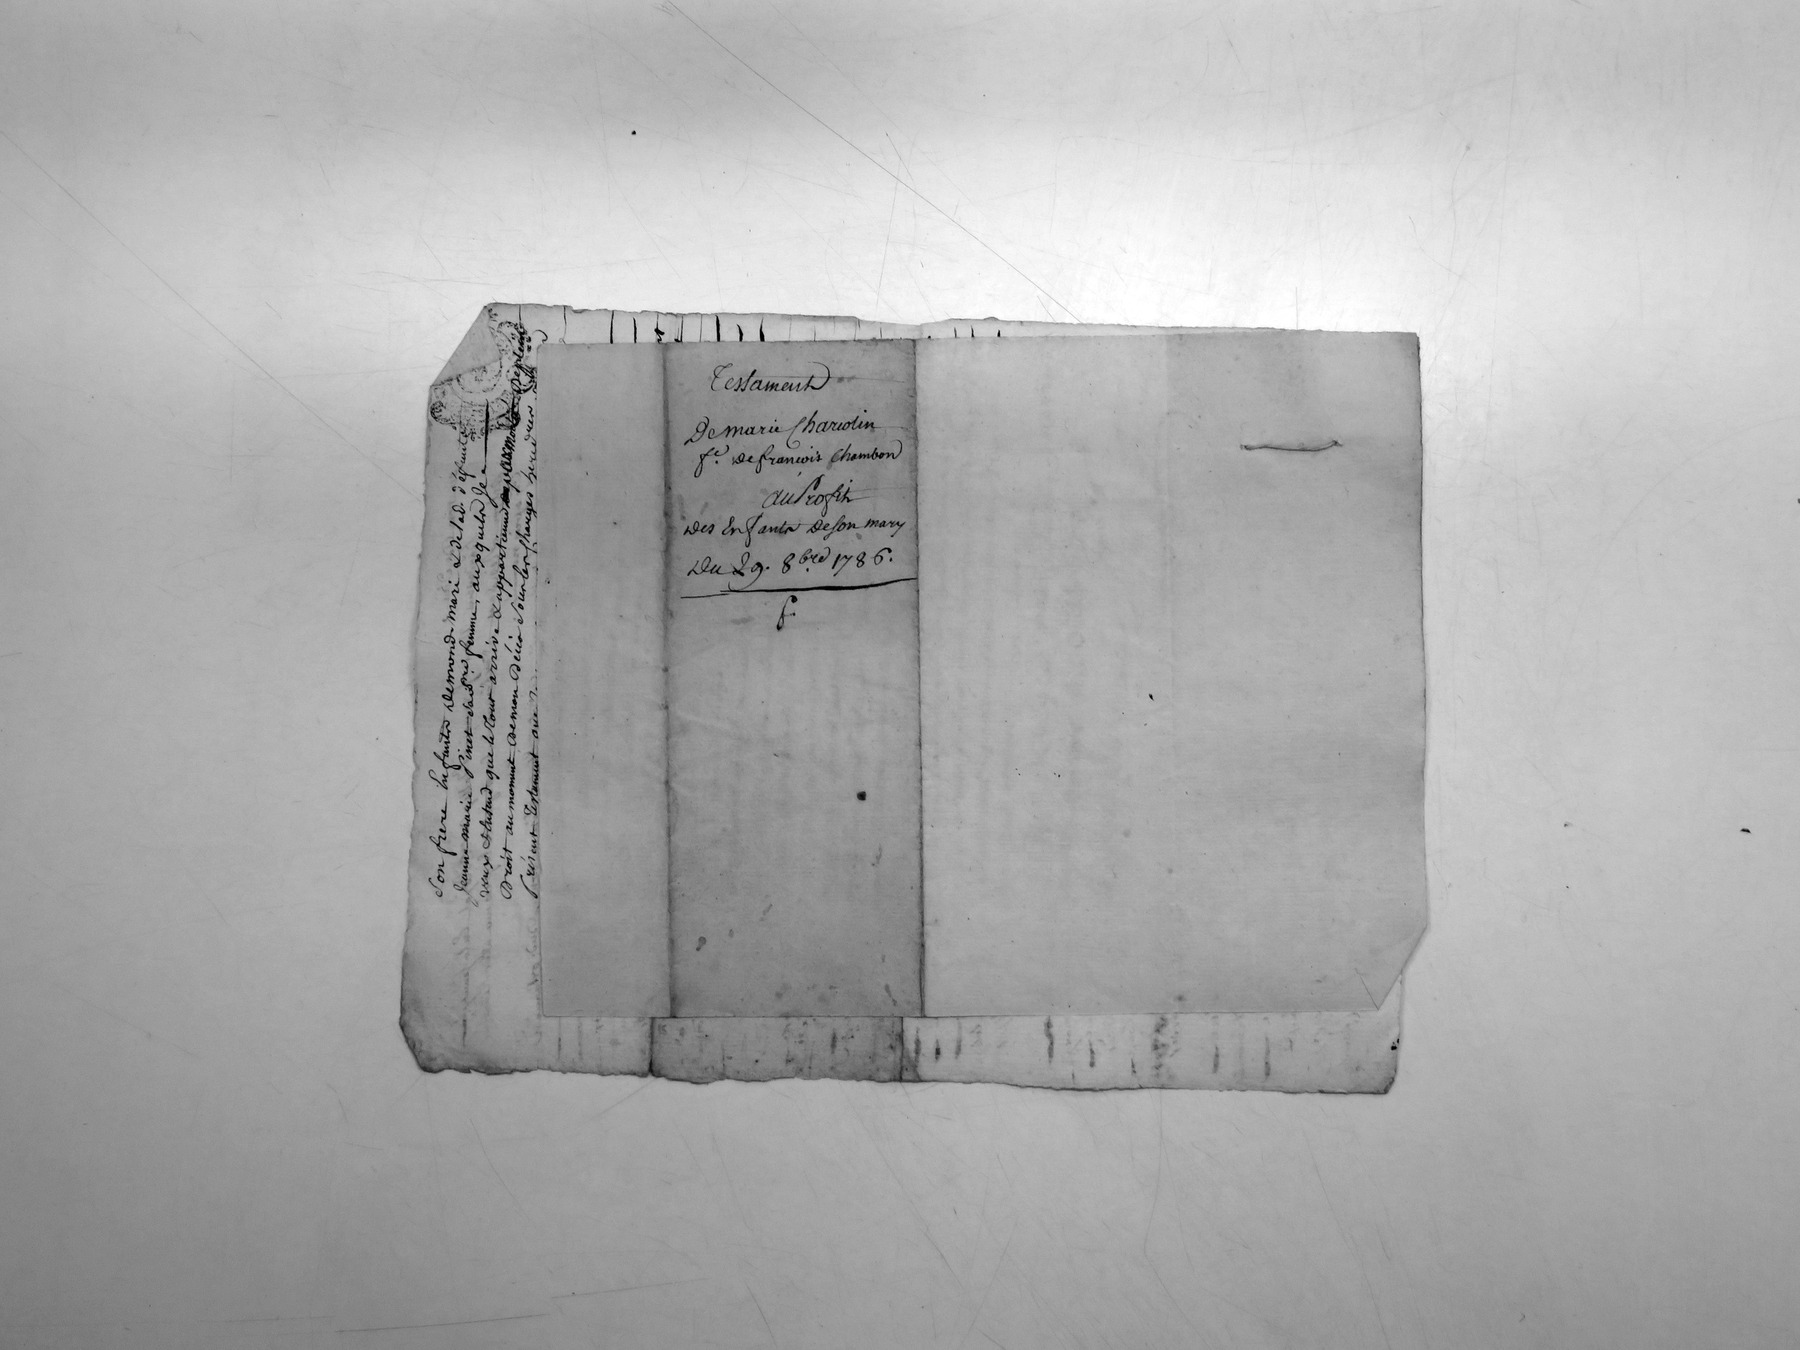 Testament
De marie Chariotin
fe. de francois Chambon
au Profit
des Enfants de son mary
Du 29. 8bre 1786.
f.
Son frere Enfants de mond. mari & de lad. défunte
Jeanne marie Pinet sad. pre femme, auxquels Je
veux & Entend que le tout arrive & appartienne
Droit au moment de mon décès sous les Charges
présent Testament